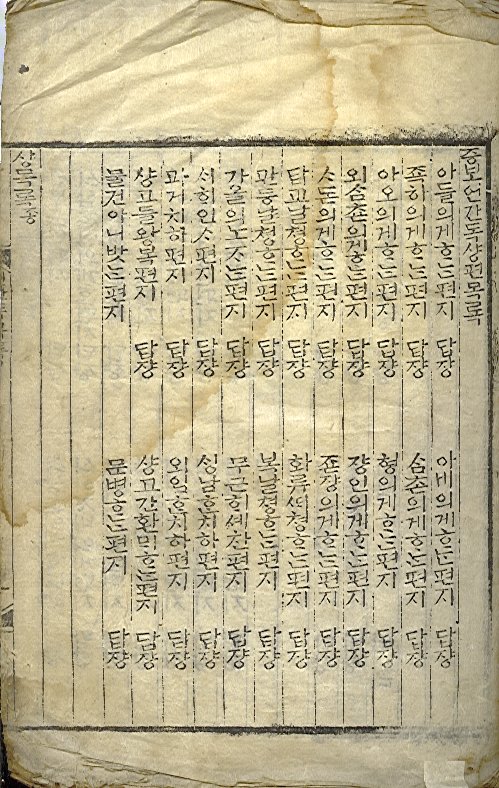 증보언간독샹편목록
아들의게ᄒᆞᄂᆞᆫ편지 답쟝 아비의게ᄒᆞᄂᆞᆫ편지 답쟝
죡하의게ᄒᆞᄂᆞᆫ편지 답쟝 삼촌의게ᄒᆞᄂᆞᆫ편지 답쟝
아오의게ᄒᆞᄂᆞᆫ편지 답쟝 형의게ᄒᆞᄂᆞᆫ편지 답쟝
외삼촌의게ᄒᆞᄂᆞᆫ편지 답쟝 쟝인의게ᄒᆞᄂᆞᆫ편지 답쟝
ᄉᆞ돈의게ᄒᆞᄂᆞᆫ편지 답쟝 존쟝의게ᄒᆞᄂᆞᆫ편지 답쟝
답교날쳥ᄒᆞᄂᆞᆫ편지 답쟝 화류ᄯᆡ쳥ᄒᆞᄂᆞᆫ편지 답쟝
관등날쳥ᄒᆞᄂᆞᆫ편지 답쟝 복날쳥ᄒᆞᄂᆞᆫ편지 답쟝
가을의노ᄌᆞᄂᆞᆫ편지 답쟝
ᄉᆡ히인ᄉᆞ편지 답쟝 ᄉᆡᆼ남ᄒᆞᆫ치하편지 답쟝
과거치하편지 답쟝 외임ᄒᆞᆫ치하편지 답쟝
샹고들왕복편지 답쟝 샹고간환ᄆᆡᄒᆞᄂᆞᆫ편지 답쟝
물건아니밧ᄂᆞᆫ편지 문병ᄒᆞᄂᆞᆫ편지 답쟝
샹목록죵